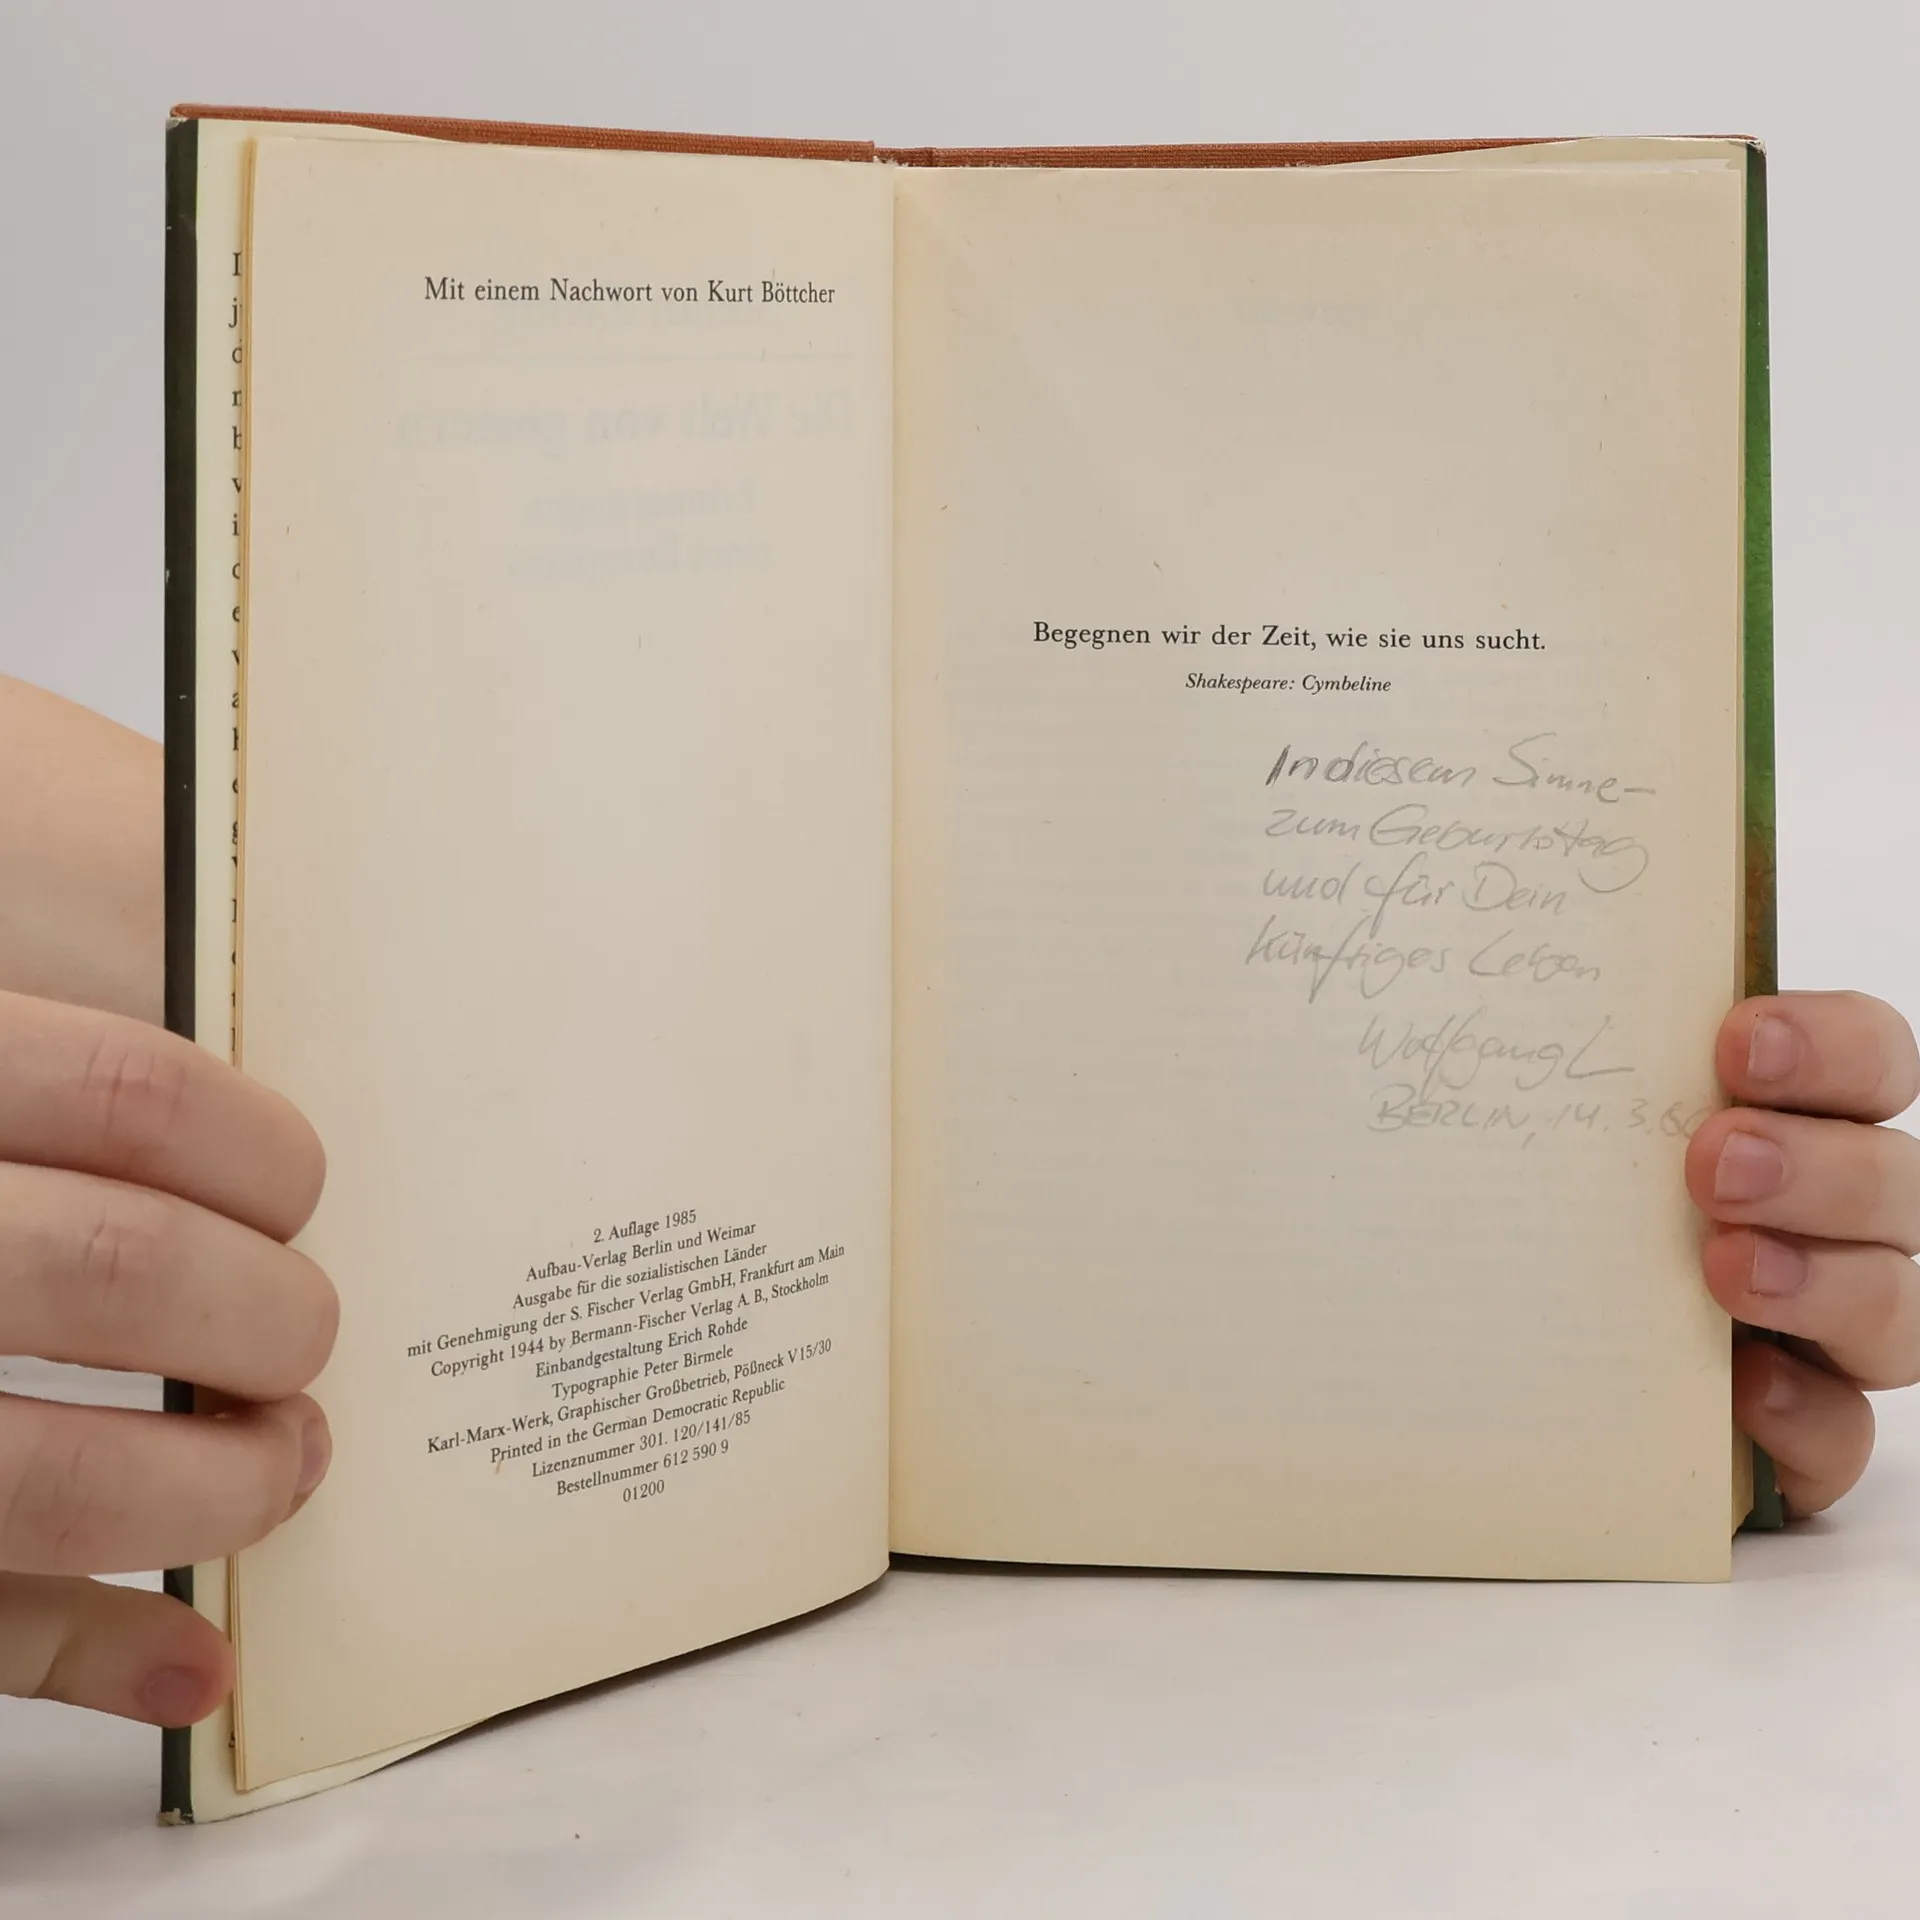 Mit einem Nachwort von Kurt Böttcher
2. Auflage 1985
Aufbau-Verlag Berlin und Weimar
Ausgabe für die sozialistischen Länder
mit Genehmigung der S. Fischer Verlag GmbH, Frankfurt am Main
Copyright 1944 by Bermann-Fischer Verlag A. B., Stockholm
Einbandgestaltung Erich Rohde
Typographie Peter Birmele
Karl-Marx-Werk, Graphischer Großbetrieb, Pößneck V 15/30
Printed in the German Democratic Republic
Lizenznummer 301. 120/141/85
Bestellnummer 612 590 9
01200
Begegnen wir der Zeit, wie sie uns sucht.
Shakespeare: Cymbeline
In diesem Sinne –
zum Geburtstag
und für Dein
künftiges Leben
Wolfgang L
BERLIN, 14. 3.